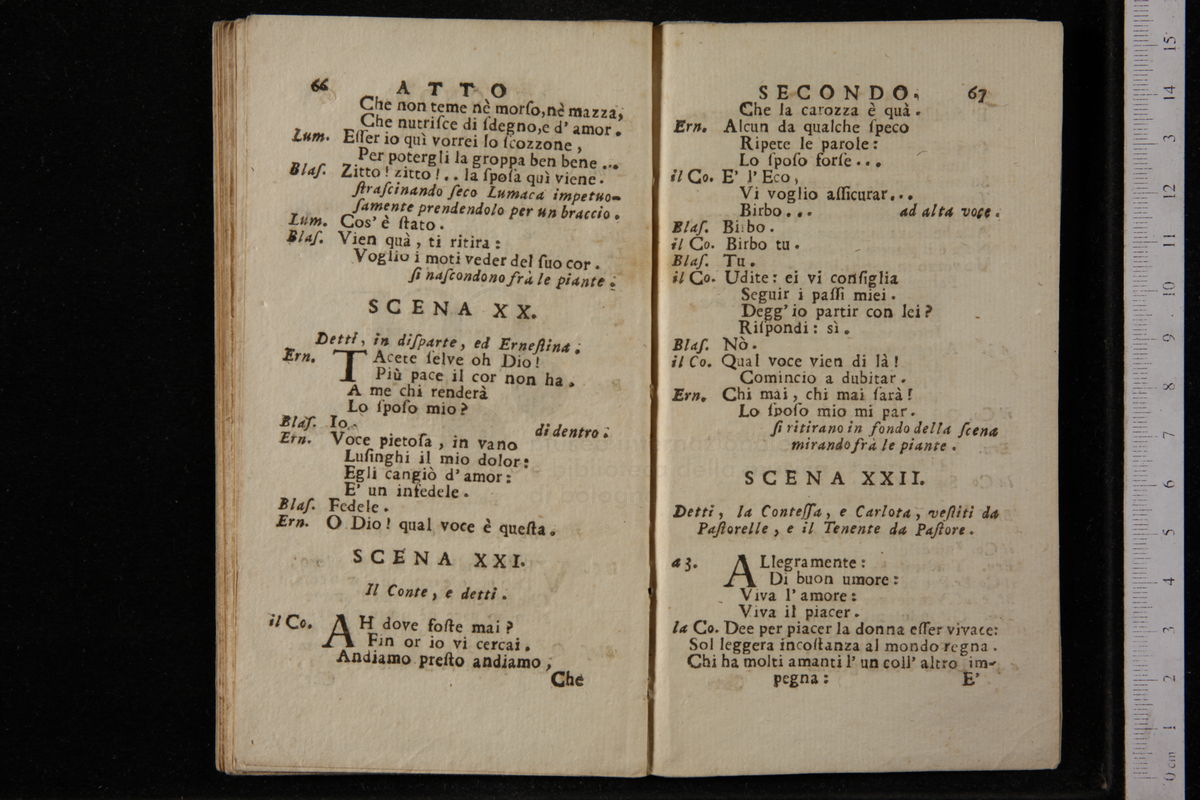 66 ATTO
Che non teme nè morſo,nè mazza,
Che nutriſce di ſdegno,e d' amor.
Lum. Eſſer io quì vorrei lo ſcozzone,
Per potergli la groppa ben bene...
Blaſ. Zitto! zitto!.. la ſpoſa quì viene.
ſtraſcinando ſeco Lumaca impetuo-
ſamente prendendolo per un braccio.
Lum. Cos' è ſtato.
Blaſ. Vien quà, ti ritira:
Voglio i moti veder del ſuo cor.
ſi naſcondono frà le piante.
SCENA XX.
Detti, in diſparte, ed Erneſtina.
Ern. TAcete ſelve oh Dio!
Più pace il cor non ha.
A me chi renderà
Lo ſpoſo mio?
Blaſ. Io. di dentro.
Ern. Voce pietoſa, in vano
Luſinghi il mio dolor:
Egli cangiò d' amor:
E' un infedele.
Blaſ. Fedele.
Ern. O Dio! qual voce è queſta.
SCENA XXI.
Il Conte, e detti.
il Co. AH dove foſte mai?
Fin or io vi cercai.
Andiamo preſto andiamo,
Che
SECONDO. 67
Che la carozza è quà.
Ern. Alcun da qualche ſpeco
Ripete le parole:
Lo ſpoſo forſe...
il Co. E' l' Eco,
Vi voglio aſſicurar...
Birbo... ad alta voce.
Blaſ. Birbo.
il Co. Birbo tu.
Blaſ. Tu.
il Co. Udite: ei vi conſiglia
Seguir i paſſi miei.
Degg' io partir con lei?
Riſpondi: sì.
Blaſ. Nò.
il Co. Qual voce vien di là!
Comincio a dubitar.
Ern. Chi mai, chi mai ſarà!
Lo ſpoſo mio mi par.
ſi ritirano in fondo della ſcena
mirando frà le piante.
SCENA XXII.
Detti, la Conteſſa, e Carlota, veſtiti da
Paſtorelle, e il Tenente da Paſtore.
a 3. ALlegramente:
Di buon umore:
Viva l' amore:
Viva il piacer.
la Co. Dee per piacer la donna eſſer vivace:
Sol leggera incoſtanza al mondo regna.
Chi ha molti amanti l' un coll' altro im-
pegna: E'
0 cm 1 2 3 4 5 6 7 8 9 10 11 12 13 14 15